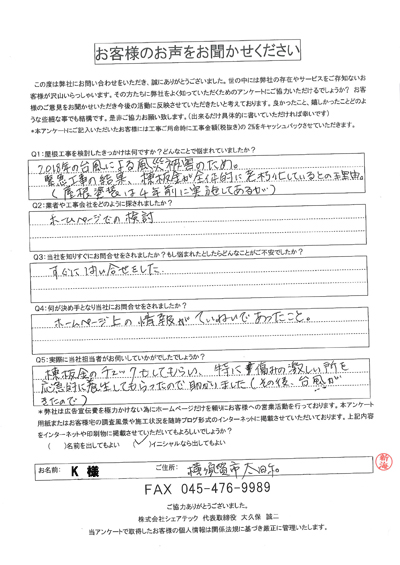 お客様のお声をお聞かせください
この度は弊社にお問い合わせをいただき、誠にありがとうございました。世の中には弊社の存在やサービスをご存知ないお
客様が沢山いらっしゃいます。その方たちに弊社をよく知っていただくためのアンケートにご協力いただけるでしょうか？ お客
様のご意見をお聞かせいただき今後の活動に反映させていただきたいと考えております。良かったこと、嬉しかったことどのよ
うな些細な事でも結構です。是非ご協力お願い致します。（出来るだけ具体的に書いていただければ幸いです）
*本アンケートにご記入いただいたお客様には工事ご用命時に工事金額(税抜き)の2%をキャッシュバックさせていただきます。
Q1:屋根工事を検討したきっかけは何ですか？どんなことで悩まれていましたか？
2018年の台風による風災被害のため。
緊急工事の結果、棟板金が全体的に老朽化しているとの理由。
（屋根塗装は4年前に実施してあるが）
Q2:業者や工事会社をどのように探されましたか？
ホームページでの検討
Q3:当社を知りすぐにお問合せをされましたか？もし悩まれたとしたらどんなことがご不安でしたか？
すぐに問い合せをした。
Q4:何が決め手となり当社にお問合せをされましたか？
ホームページ上の情報がていねいであったこと。
Q5:実際に当社担当者がお伺いしていかがでしたでしょうか？
棟板金のチェックをしてもらい、特に傷みの激しい所を
応急的に養生してもらったので助かりました（その後、台風が
きたので）
*弊社は広告宣伝費を極力かけない為にホームページだけを頼りにお客様への営業活動を行っております。本アンケート
用紙またはお客様宅の調査風景や施工状況を随時ブログ形式のインターネットに掲載させていただいております。上記内容
をインターネットや印刷物に掲載させていただいてもよろしいでしょうか？
（　）名前を出してもよい （✓）イニシャルなら出してもよい
お名前: K 様 ご住所: 横須賀市
FAX 045-476-9989
ご協力ありがとうございました。
株式会社シェアテック 代表取締役 大久保 誠二
当アンケートで取得したお客様の個人情報は関係法規に基づき厳正に管理いたします。